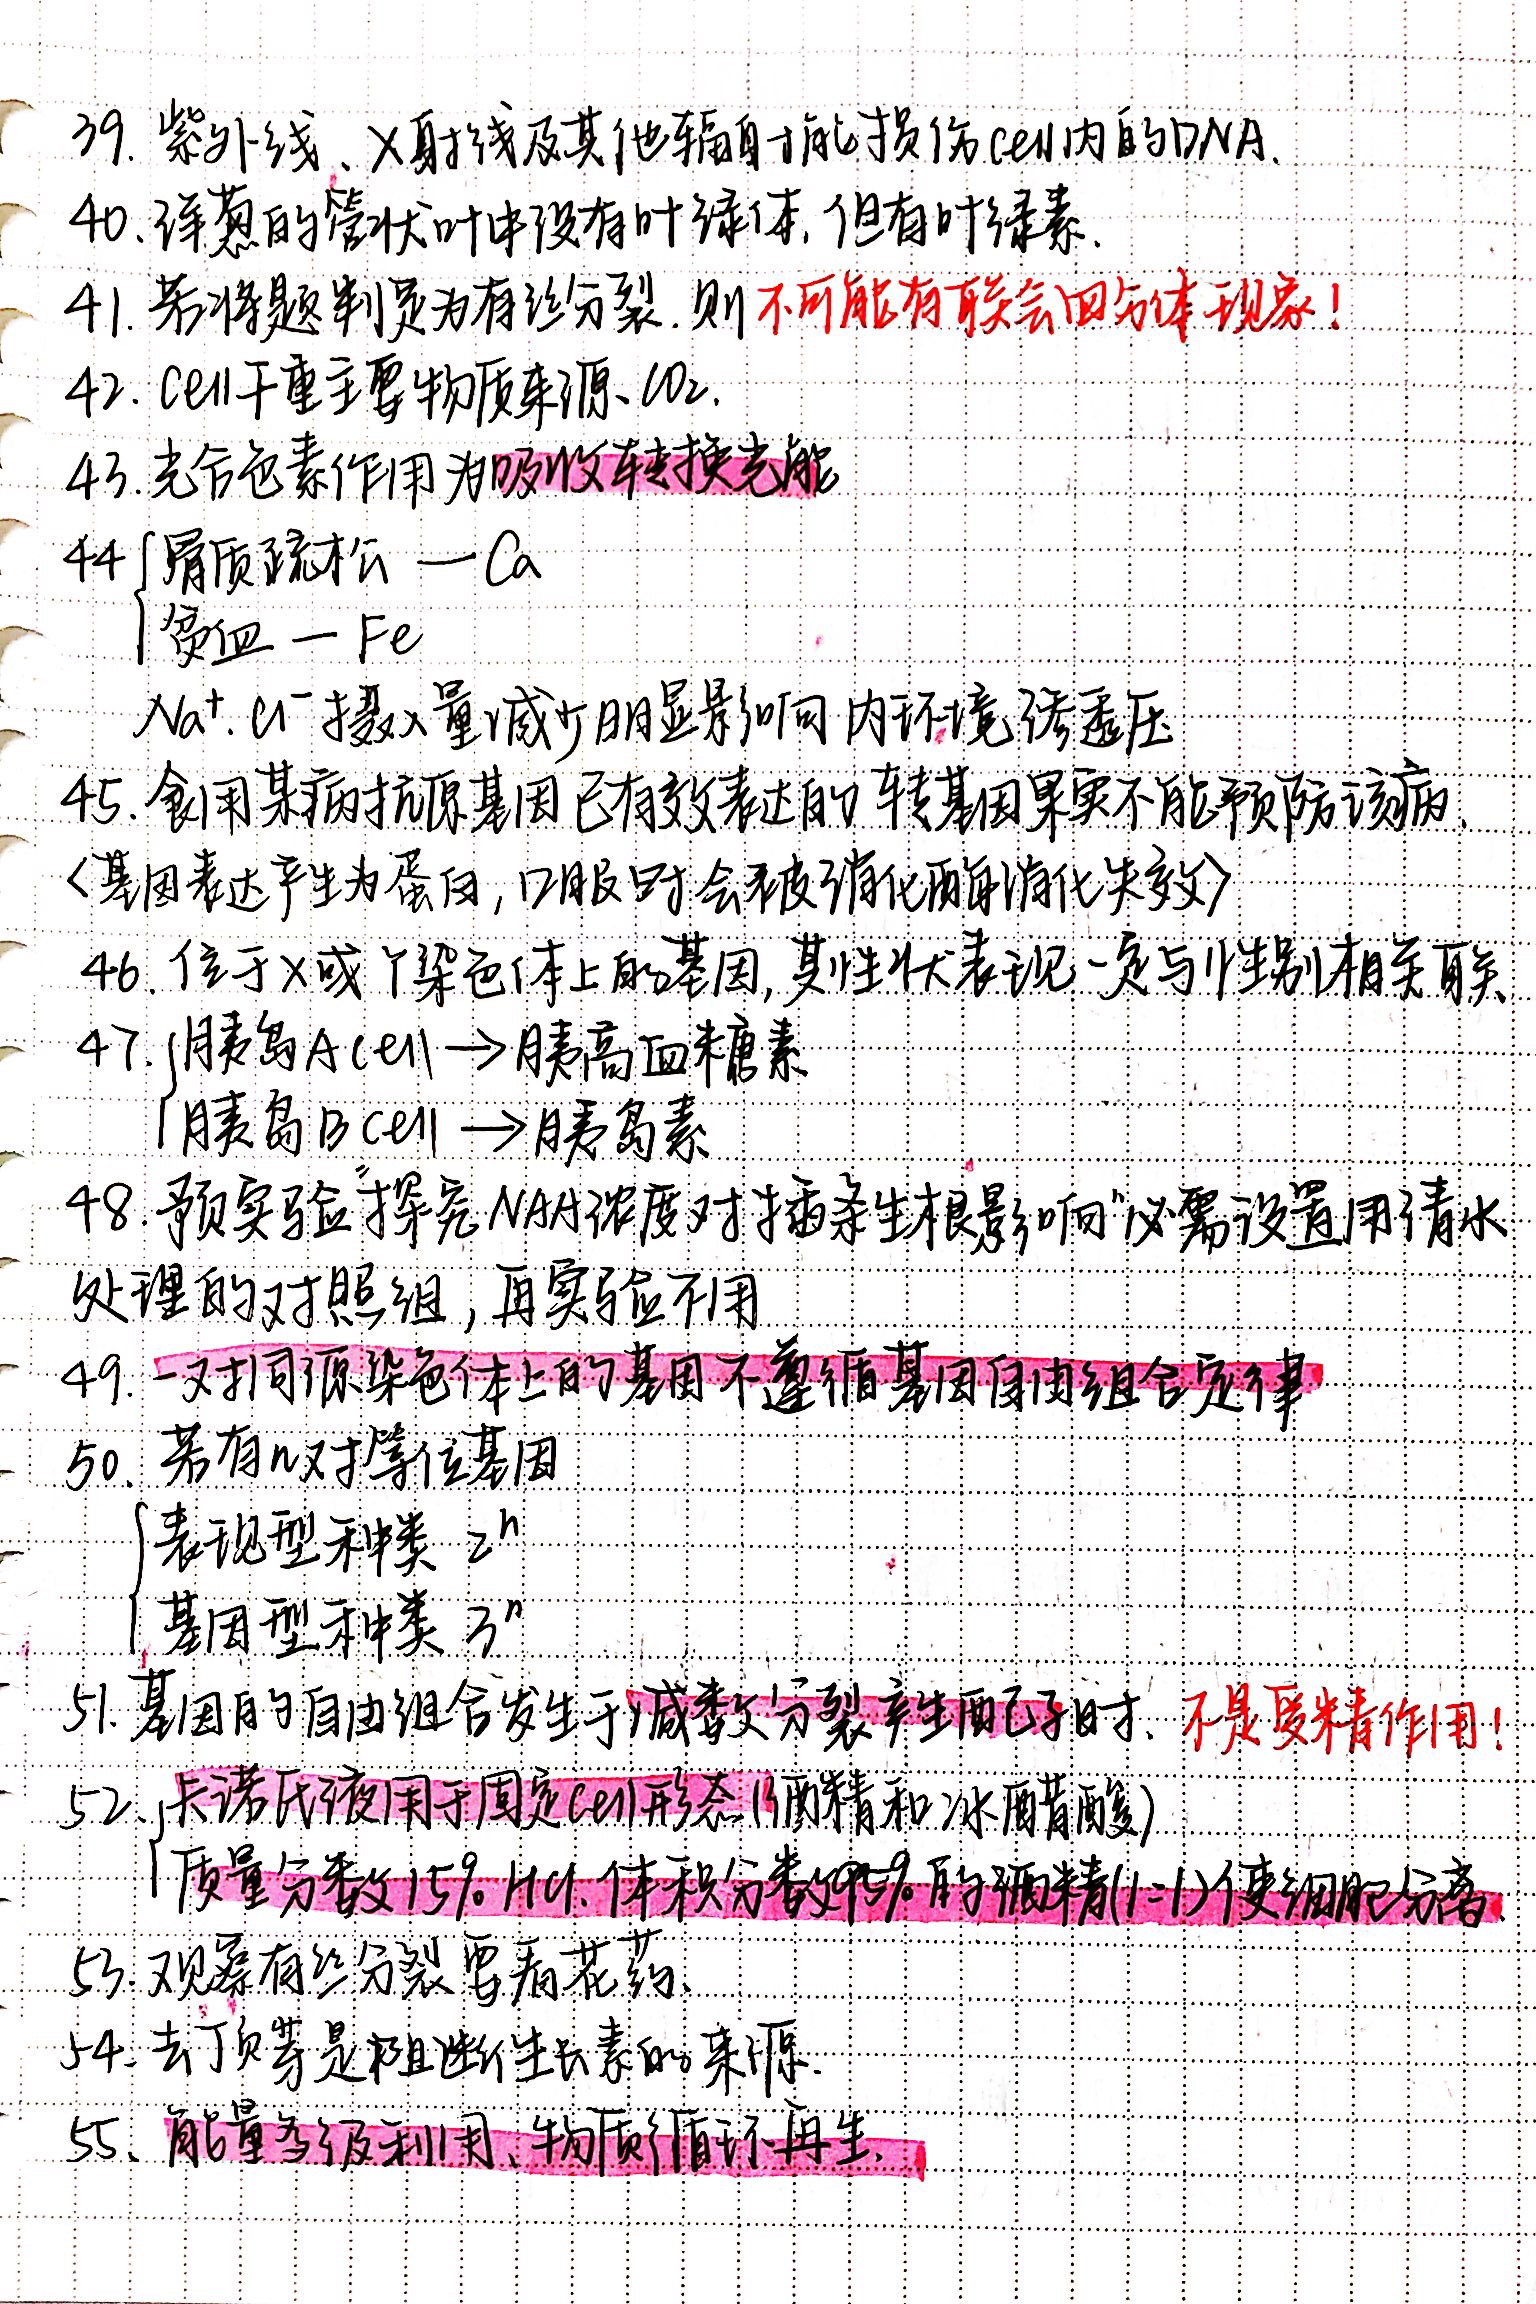 39. 紫外线、X射线及其他辐射能损伤cell内的DNA.
40. 洋葱的管状叶中没有叶绿体, 但有叶绿素.
41. 若将题判定为有丝分裂. 则不可能有联会四分体现象!
42. cell干重主要物质来源、CO₂.
43. 光合色素作用为吸收转换光能
44 { 骨质疏松 — Ca
贫血 — Fe
Na⁺. Cl⁻摄入量减少明显影响内环境渗透压
45. 食用某病抗原基因已有效表达的转基因果实不能预防该病.
<基因表达产生为蛋白, 口服时会被消化酶消化失效>
46. 位于X或Y染色体上的基因, 其性状表现一定与性别相关联
47. { 胰岛A cell → 胰高血糖素
胰岛B cell → 胰岛素
48. 预实验“探究NAA浓度对插条生根影响”必需设置用清水
处理的对照组, 再实验不用
49. 一对同源染色体上的基因不遵循基因自由组合定律
50. 若有n对等位基因
{ 表现型种类 2ⁿ
基因型种类 3ⁿ
51. 基因的自由组合发生于减数分裂产生配子时. 不是受精作用!
52. { 卡诺氏液用于固定cell形态(酒精和冰醋酸)
质量分数15% HCl. 体积分数95%的酒精(1:1)使细胞分离.
53. 观察有丝分裂要看花药.
54. 去顶芽是阻断生长素的来源.
55. 能量多级利用、物质循环再生.